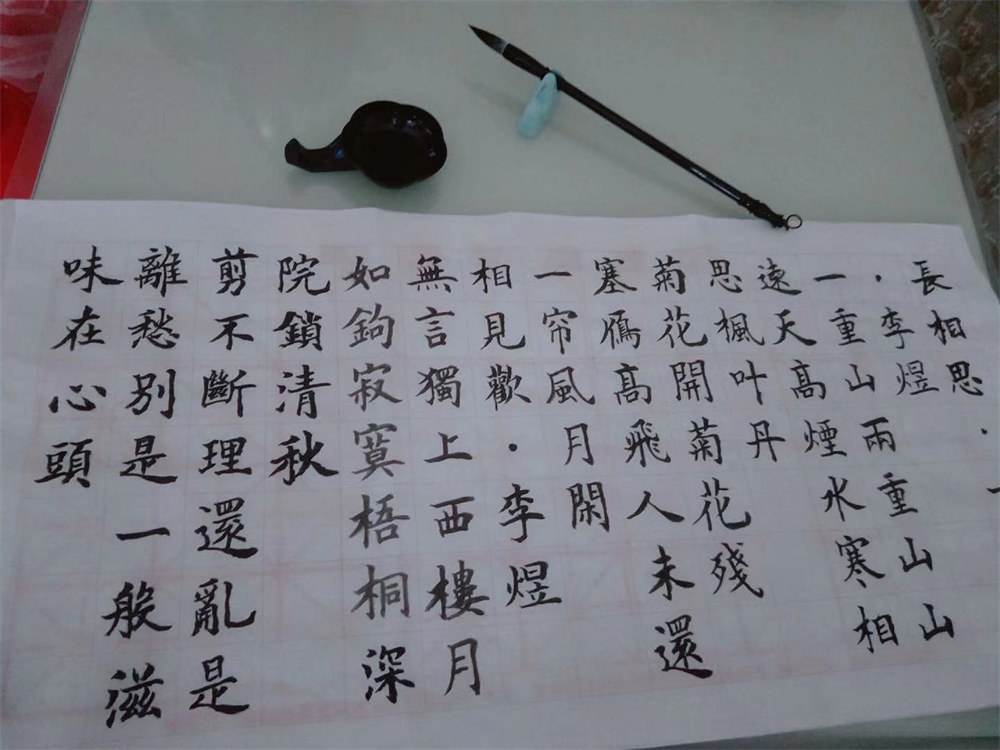 長相思·一
·李煜
一重山兩重山山
遠天高煙水寒相
思楓叶丹
菊花開菊花殘
塞鴈高飛人未還
一帘風月閑
相見歡·李煜
無言獨上西樓月
如鉤寂寞梧桐深
院鎖清秋
剪不斷理還亂是
離愁別是一般滋
味在心頭